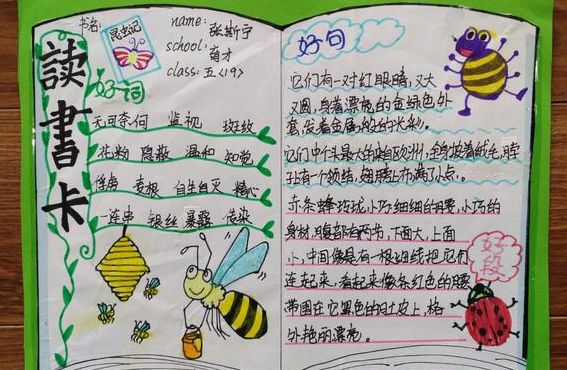 读书卡
书名:
昆虫记
name: 张斯宇
school: 育才
class: 五<19>
好词
无可奈何 监视 斑纹
花粉 隐蔽 温和 知觉
麦根 自生自灭 精心
一连串 银丝 暴躁 传染
好句
它们有一对红眼睛,又大
又圆,身着漂亮的金绿色外
套,发着金属般的光彩。
它们中个头最大的来自欧洲,全身披着绒毛,脖
子有一个领结,翅膀上布满了小点。
好段
赤条蜂玲珑,小巧细细的腰,小巧的
身材,腹部有两节,下面大,上面
小,中间像是有一根细线把它们
连起来,看起来像条红色的腰
带围在它黑色的肚皮上,格
外艳丽漂亮。